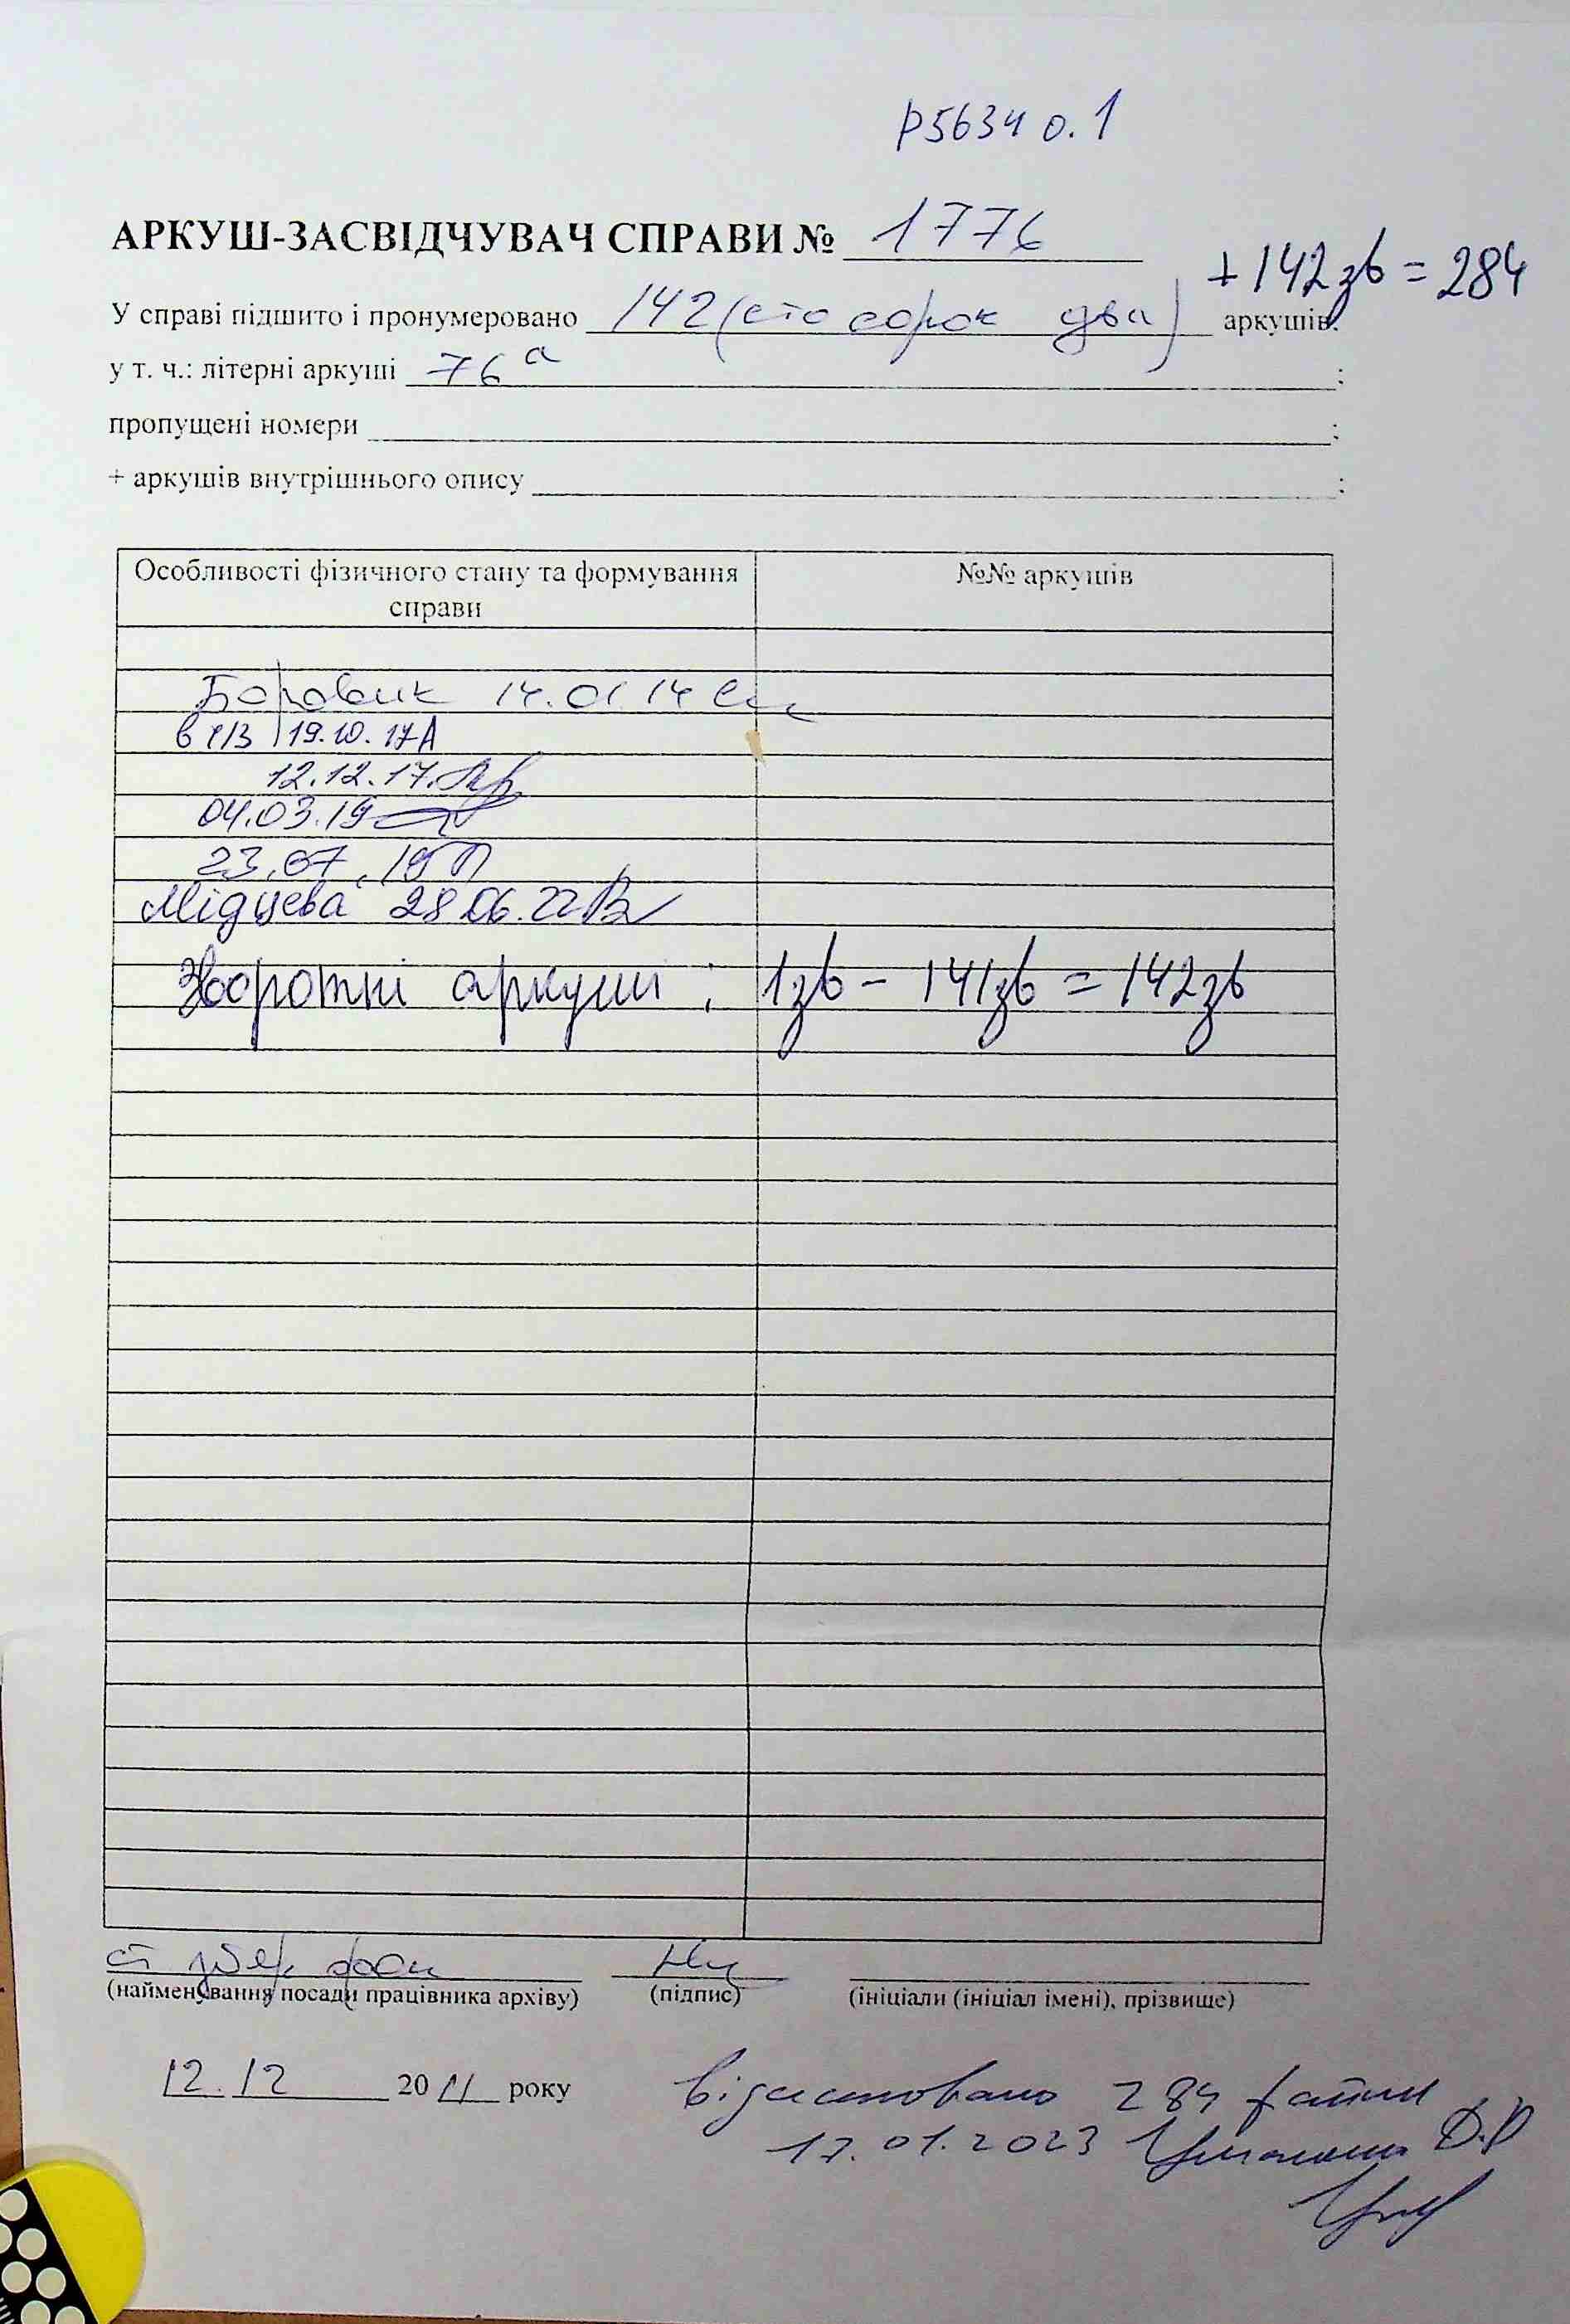 Р5634 о.1
АРКУШ-ЗАСВІДЧУВАЧ СПРАВИ № 1776
+142зв = 284
У справі підшито і пронумеровано 142 (сто сорок два) аркушів:
у т. ч.: літерні аркуші 76а ;
пропущені номери ;
+ аркушів внутрішнього опису ;
Особливості фізичного стану та формування справи
№№ аркушів
Боровик 14.01.14
19.10.17
12.12.17.
04.03.19
23.07.19
Мідцева 28.06.22
Зворотні аркуші : 1зв - 141зв = 142зв
ст збер фон
(найменування посади працівника архіву) (підпис) (ініціали (ініціал імені), прізвище)
12.12 2011 року
Відскановано 284 файли
17.01.2023